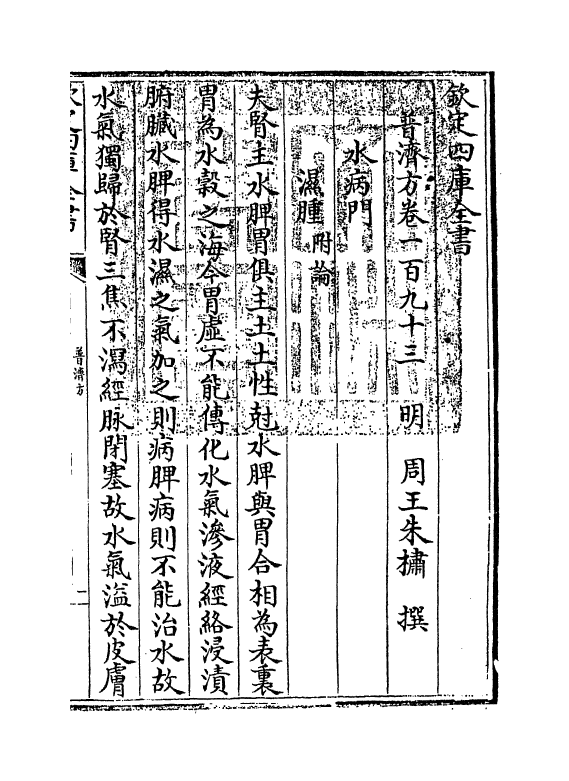 欽定四庫全書
普濟方卷一百九十三 明 周王朱橚 撰
水病門
濕腫附論
夫腎主水脾胃俱主土土性尅水脾與胃合相為表裏
胃為水穀之海今胃虛不能傳化水氣滲液經絡浸漬
腑臟水脾得水濕之氣加之則病脾病則不能治水故
水氣獨歸於腎三焦不瀉經脉閉塞故水氣溢於皮膚
普濟方